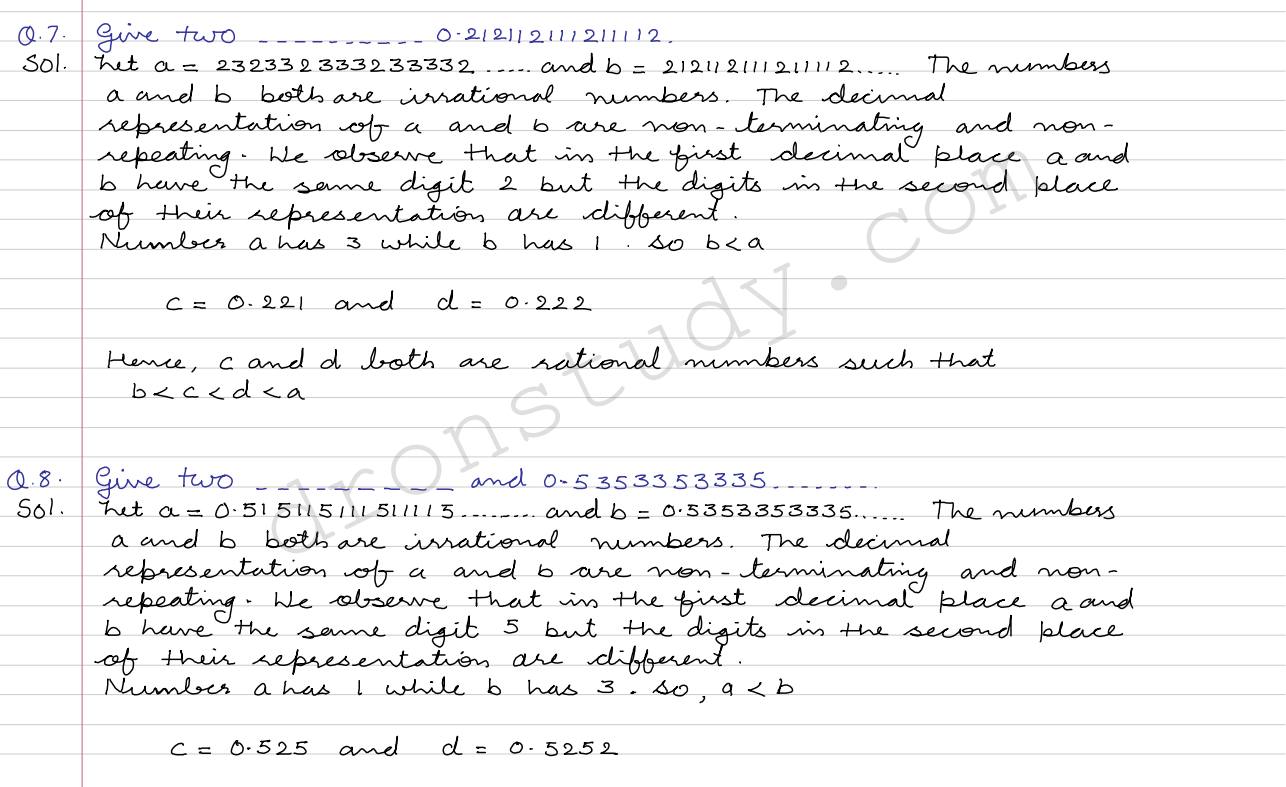 Q.7. Give two ---------- 0.212112111211112.
Sol. Let a = 232332333233332 ..... and b = 212112111211112..... The numbers
a and b both are irrational numbers. The decimal
representation of a and b are non-terminating and non-
repeating. We observe that in the first decimal place a and
b have the same digit 2 but the digits in the second place
of their representation are different.
Number a has 3 while b has 1. so b<a
c = 0.221 and d = 0.222
Hence, c and d both are rational numbers such that
b < c < d < a
Q.8. Give two --------- and 0.5353353335........
Sol. Let a = 0.515115111511115........ and b = 0.5353353335...... The numbers
a and b both are irrational numbers. The decimal
representation of a and b are non-terminating and non-
repeating. We observe that in the first decimal place a and
b have the same digit 5 but the digits in the second place
of their representation are different.
Number a has 1 while b has 3. so, a < b
c = 0.525 and d = 0.5252
dronstudy.com